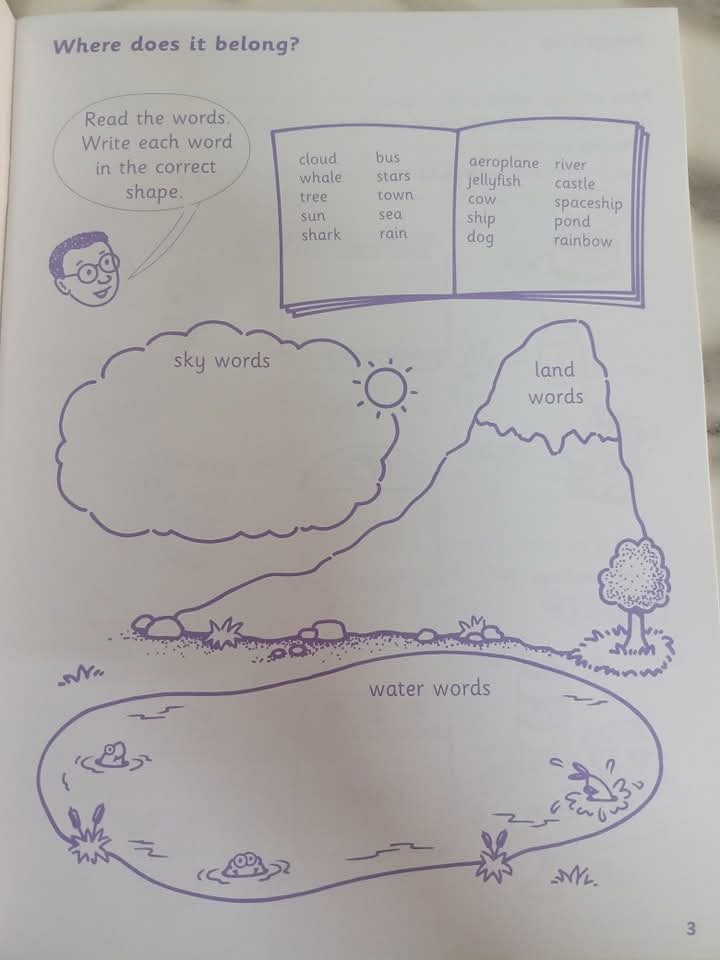 Where does it belong?
Read the words.
Write each word
in the correct
shape.
cloud
whale
tree
sun
shark
bus
stars
town
sea
rain
aeroplane
jellyfish
cow
ship
dog
river
castle
spaceship
pond
rainbow
sky words
land
words
water words
3